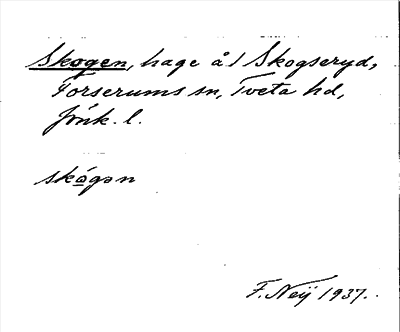 Skogen, hage å 1 Skogseryd,
Forserums sn, Tveta hd,
Jönk. l.
skógən
F. Neij 1937.